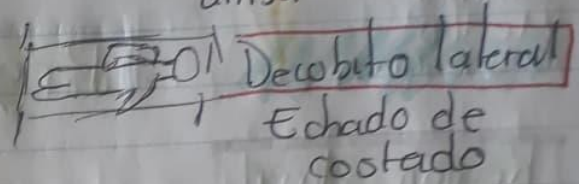 Decobito lateral
Echado de
costado